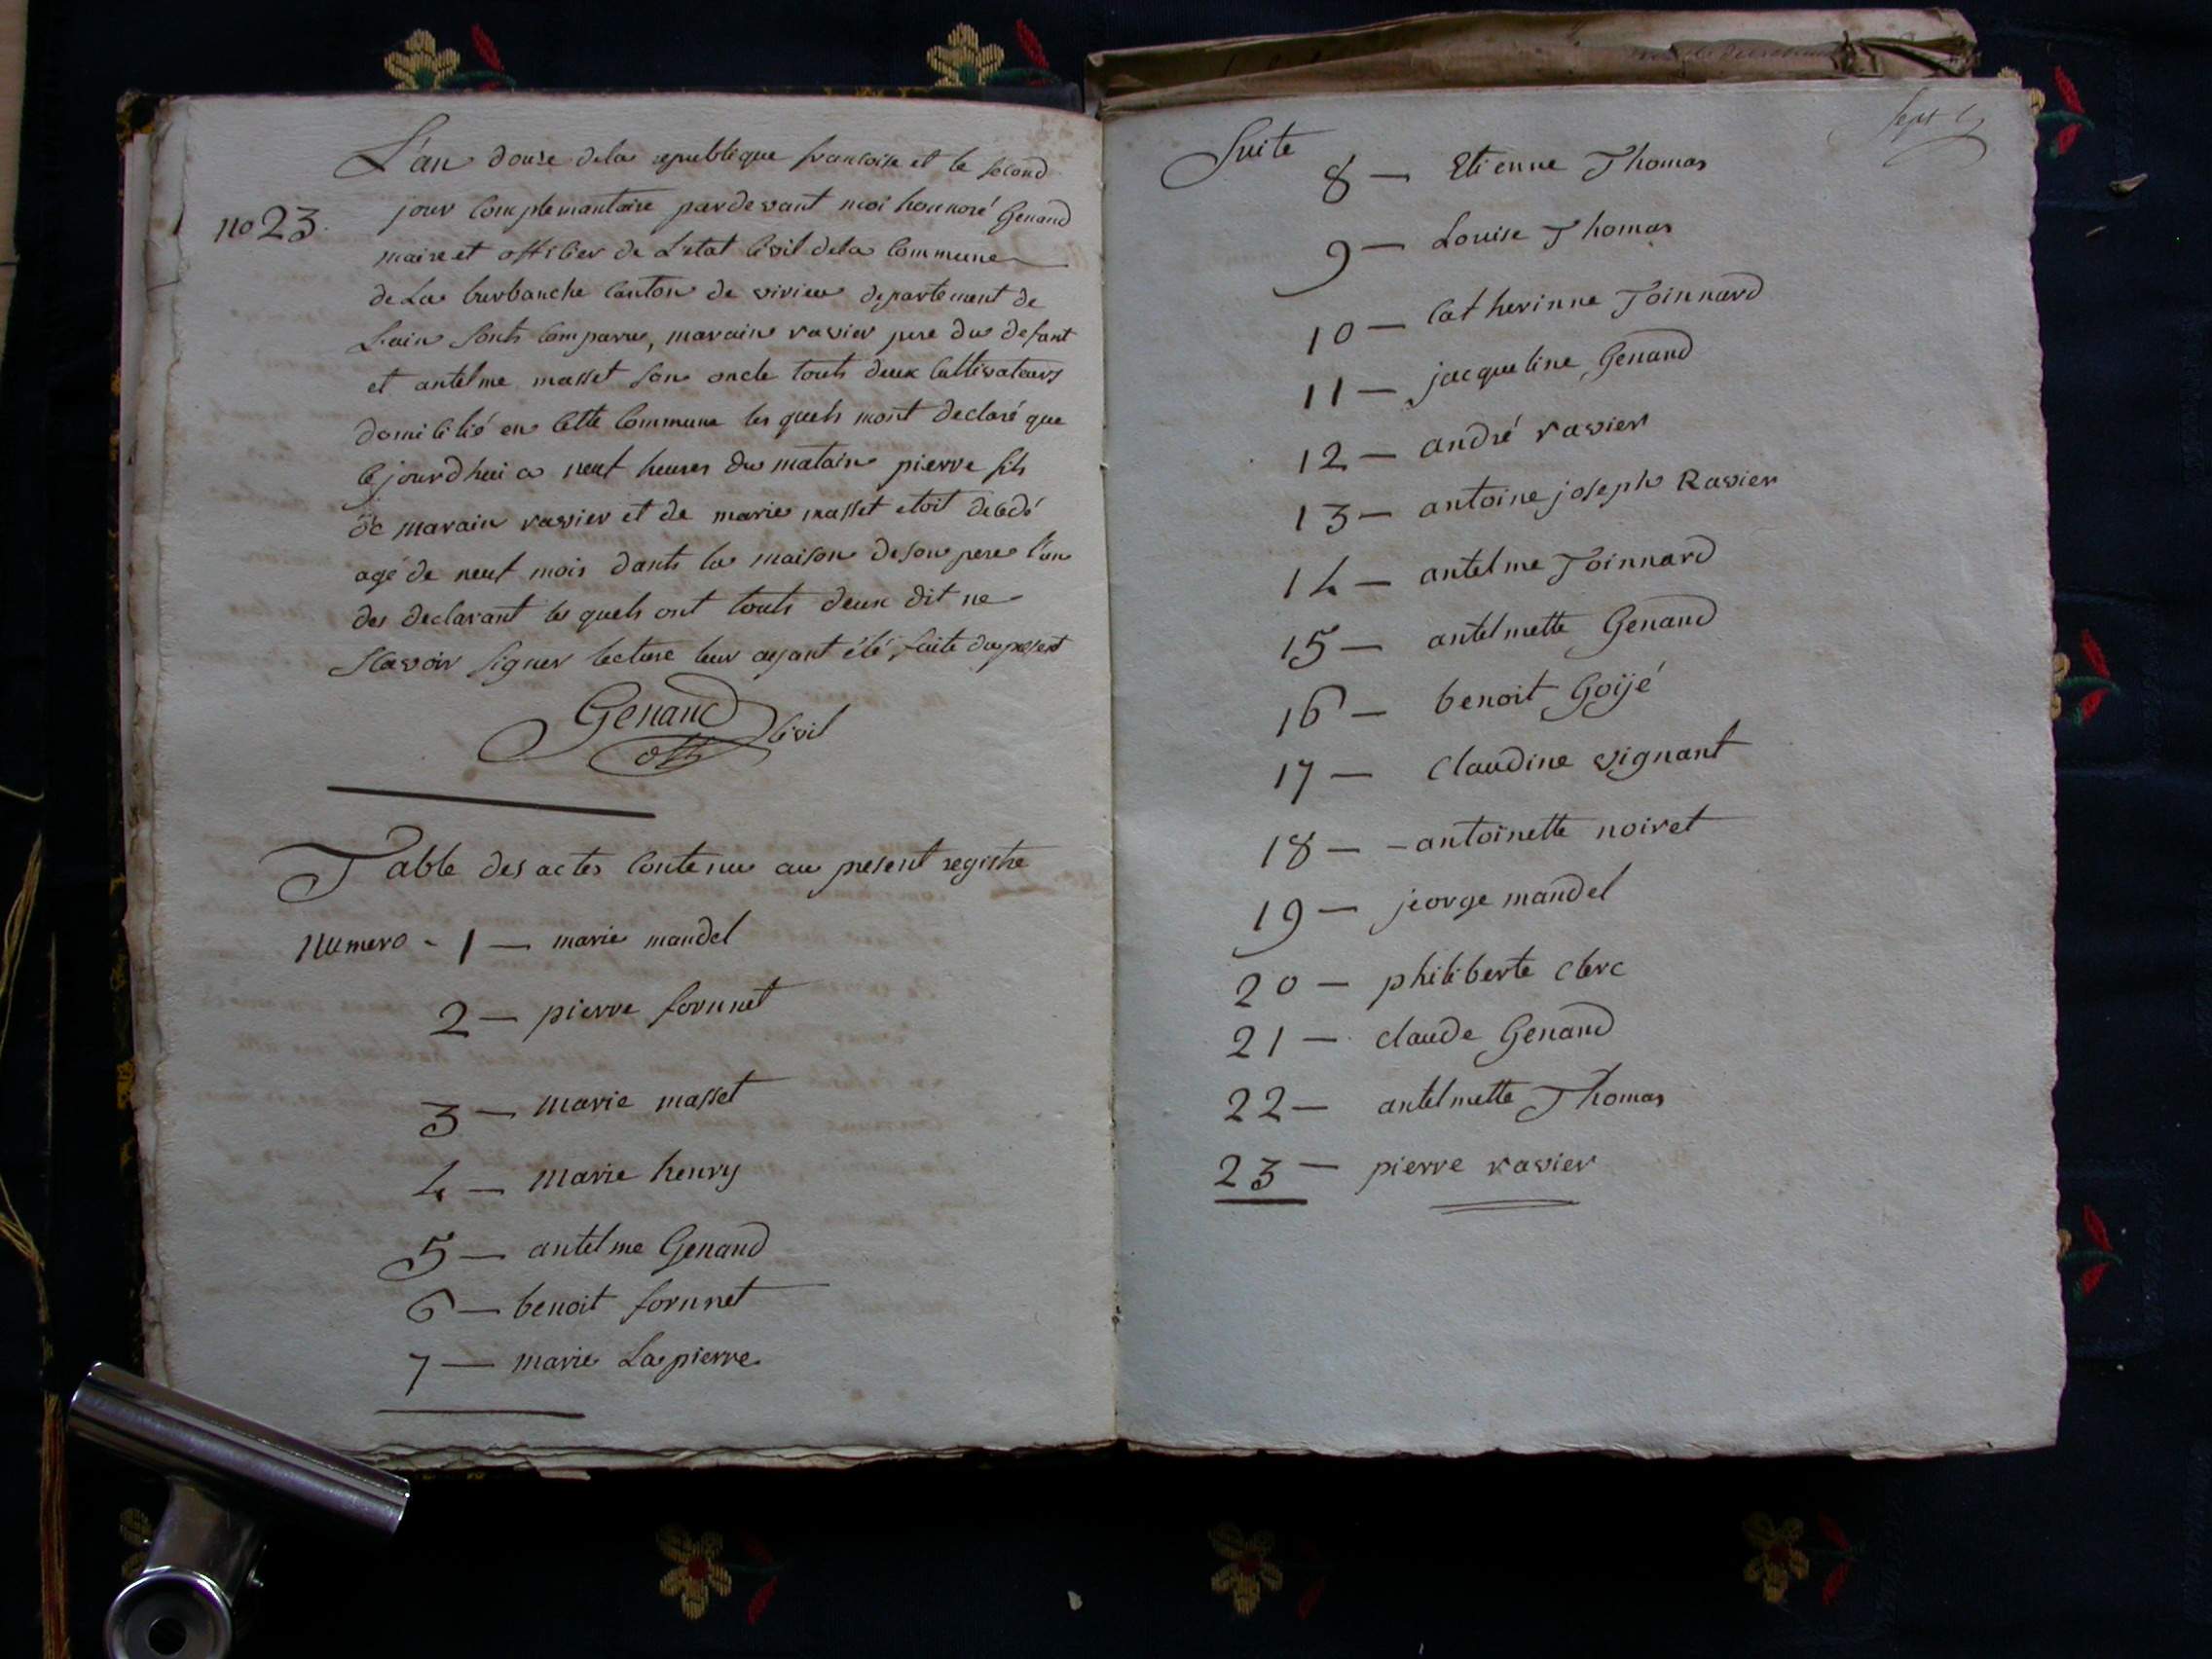 L'an douse dela republique francoise et le second
no 23. jour complemantaire pardevant moi honnoré Genand
maire et officier de L'etat Civil dela Commune
de La burbanche Canton de virieu departement de
L'ain sonts comparu, marain ravier pere du defant
et antelme masset son oncle touts deux Cultivateurs
domicilié en Cette Commune les quels mont declaré que
Cejourdhui a neuf heures du matain pierre fils
de marain ravier et de marie masset etoit decedé
agé de neuf mois dants la maison deson pere l'un
des declarant les quels ont touts deux dit ne
scavoir signer lecture leur ayant été faite du present
Genand
off Civil
Table des actes Contenu au present registre
Numero - 1 — marie mandel
2 — pierre fornnet
3 — marie masset
4 — marie henry
5 — antelme Genand
6 — benoit fornnet
7 — marie Lapierre
Suite
8 — Etienne Thomas
9 — Louise Thomas
10 — Catherinne Toinnard
11 — jacqueline Genand
12 — andré ravier
13 — antoine joseph Ravier
14 — antelme Toinnard
15 — antelmette Genand
16 — benoit Goijé
17 — Claudine vignant
18 — - antoinette noiret
19 — jeorge mandel
20 — philiberte clerc
21 — claude Genand
22 — antelmette Thomas
23 — pierre ravier